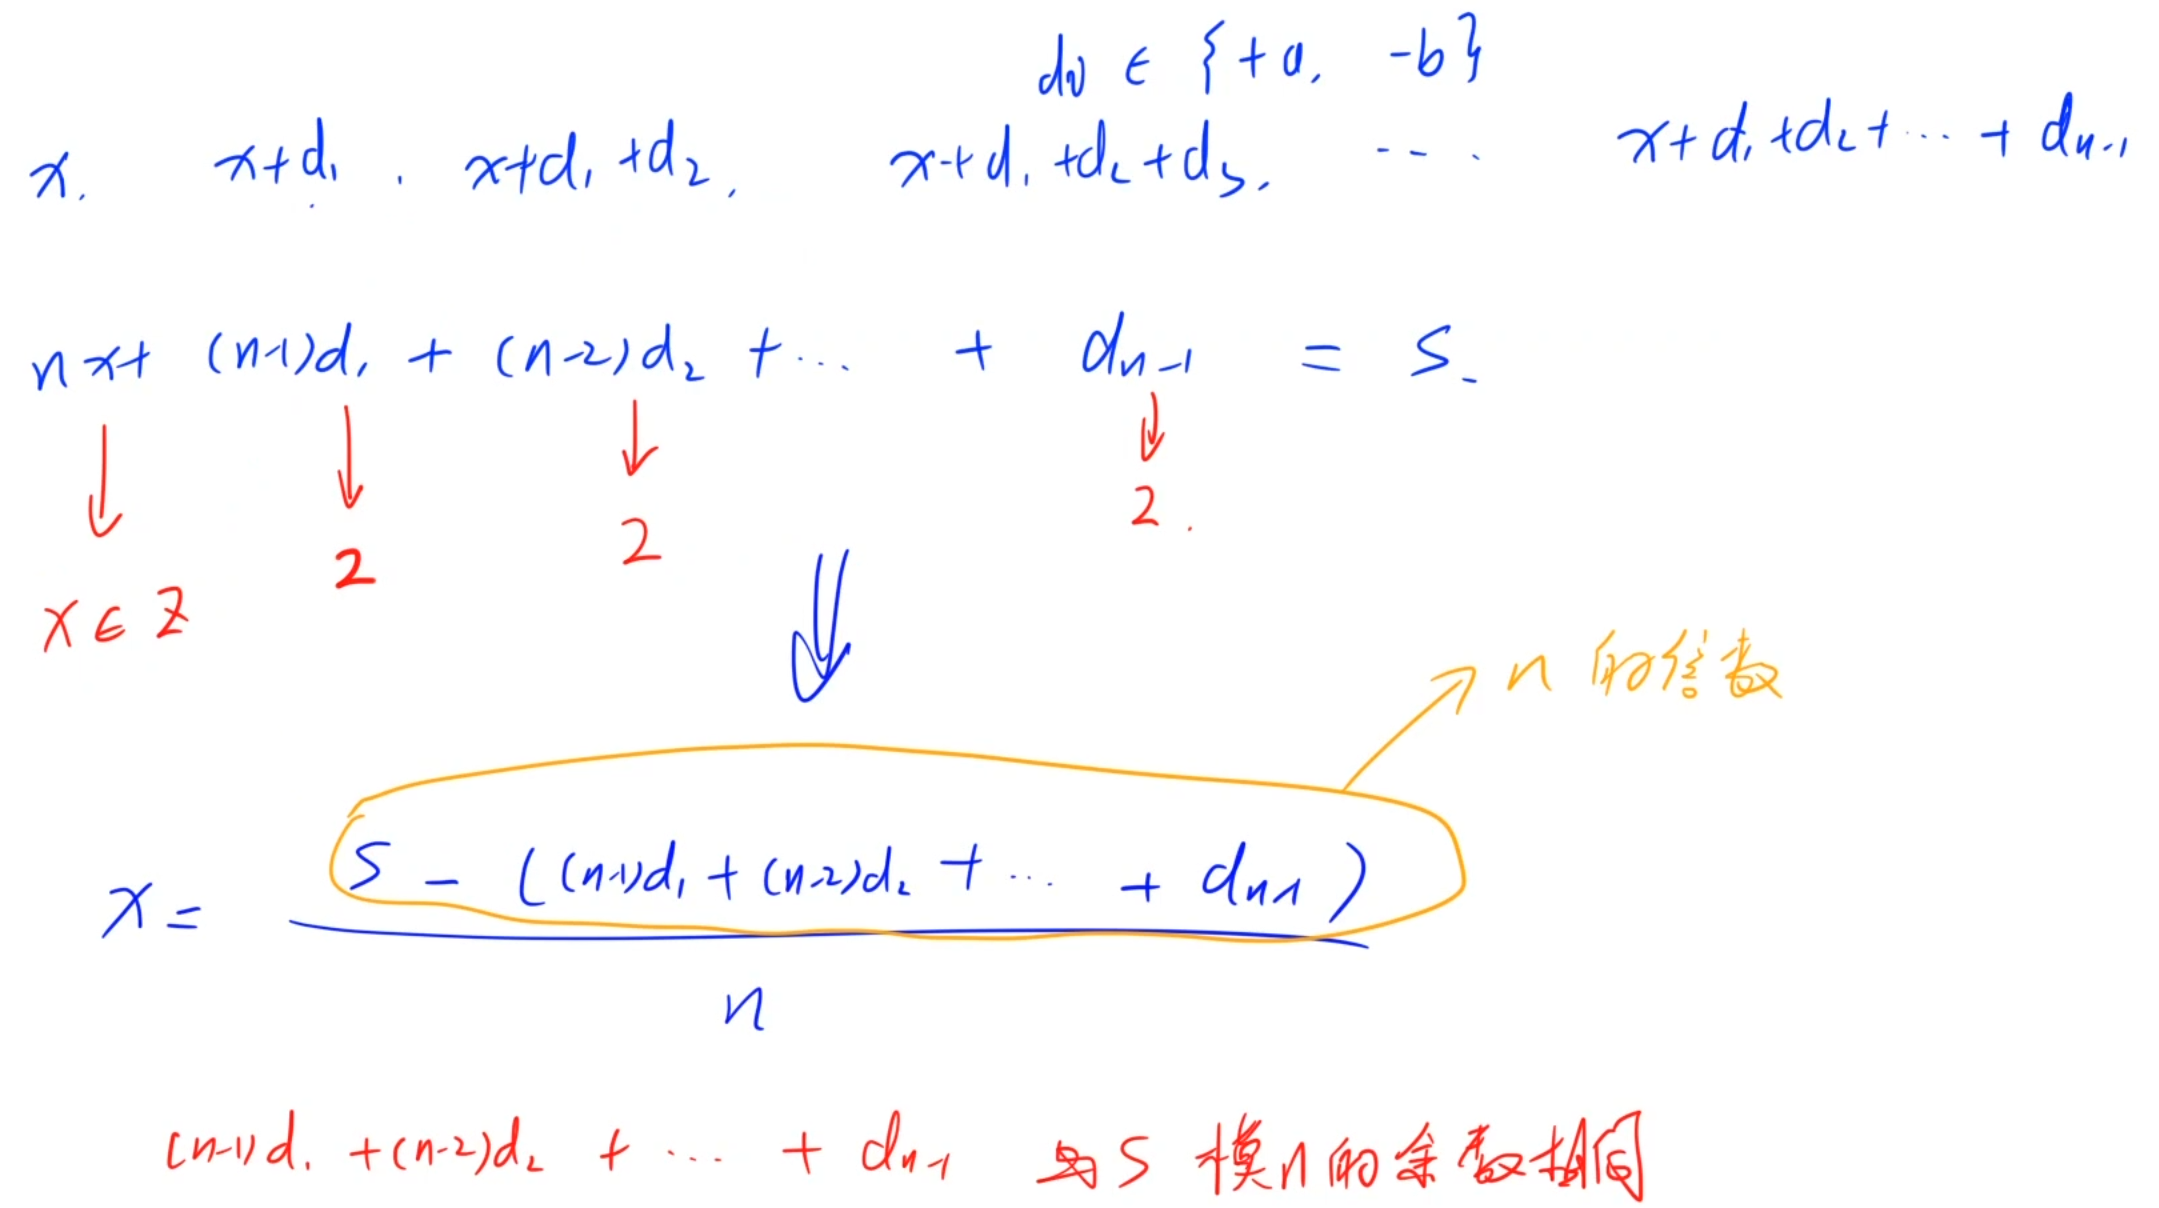 di ∈ {+a, -b}
x, x+d₁, x+d₁+d₂, x+d₁+d₂+d₃, ... x+d₁+d₂+...+dₙ₋₁
nx+ (n-1)d₁ + (n-2)d₂ +... + dₙ₋₁ = S
2 2 2
x∈Z
n 的倍数
x = (S - ((n-1)d₁ + (n-2)d₂ + ... + dₙ₋₁)) / n
(n-1)d₁ + (n-2)d₂ + ... + dₙ₋₁ 与 S 模n的余数相同